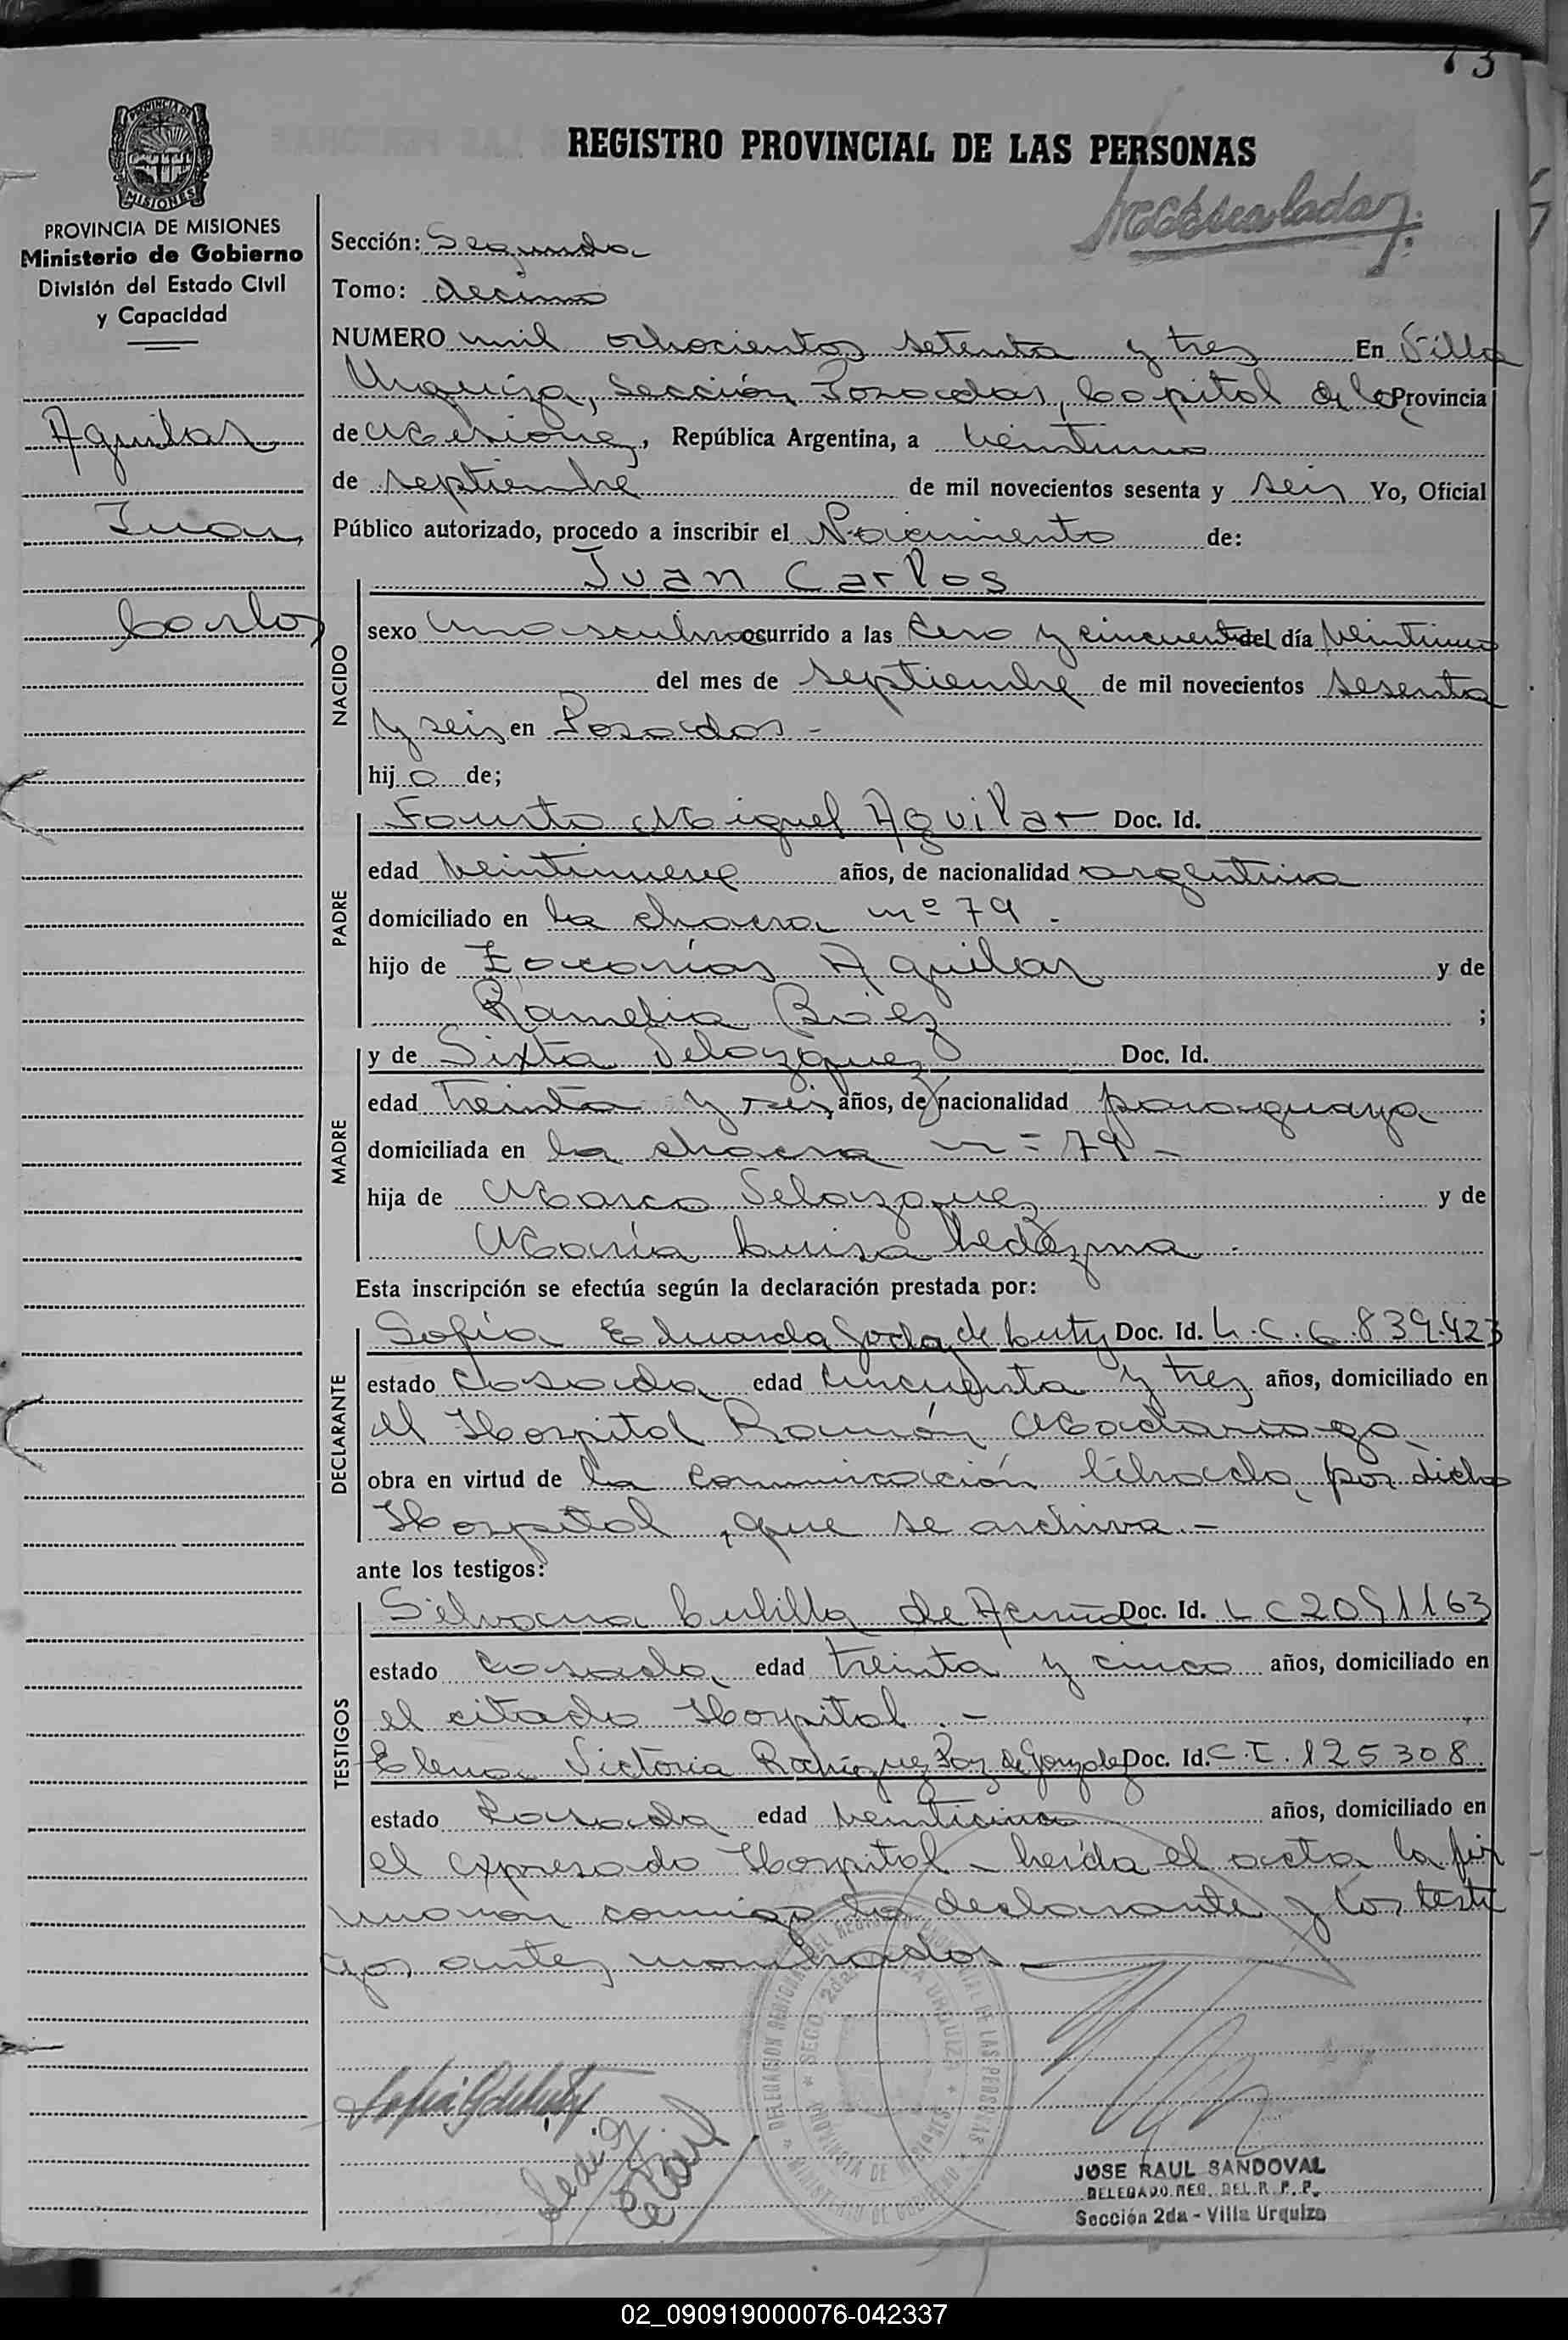 73
REGISTRO PROVINCIAL DE LAS PERSONAS
PROVINCIA DE MISIONES
MISIONES
PROVINCIA DE MISIONES
Ministerio de Gobierno
División del Estado Civil
y Capacidad
Aguilar
Juan
Carlos
Sección: Segunda
Tomo: decimo
NUMERO mil ochocientos setenta y tres En Villa
Urquiza, Sección Posadas, Capital de la Provincia
de Misiones, República Argentina, a veintiuno
de septiembre de mil novecientos sesenta y seis Yo, Oficial
Público autorizado, procedo a inscribir el Nacimiento de:
Juan Carlos
NACIDO
sexo masculino ocurrido a las cero y cincuenta del día veintiuno
del mes de septiembre de mil novecientos sesenta
y seis en Posadas -
hijo de;
PADRE
Fausto Miguel Aguilar Doc. Id.
edad veintinueve años, de nacionalidad argentina
domiciliado en la chacra nº 79 -
hijo de Zacarías Aguilar y de
Ramelia Báez ;
MADRE
y de Sixta Velazquez Doc. Id.
edad treinta y seis años, de nacionalidad paraguaya
domiciliada en la chacra nº 79 -
hija de Marco Velazquez y de
María Luisa Ledezma -
Esta inscripción se efectúa según la declaración prestada por:
DECLARANTE
Sofía Eduarda Goda de Luty Doc. Id. L.C. 6.839.423
estado casada edad cincuenta y tres años, domiciliado en
el Hospital Ramón Madariaga
obra en virtud de la comunicación librada por dicho
Hospital, que se archiva.-
ante los testigos:
TESTIGOS
Silvana de Acuña Doc. Id. LC 2091163
estado casada edad treinta y cinco años, domiciliado en
el citado Hospital.-
Elena Victoria Rodríguez Paz de Gonzalez Doc. Id. C.I. 125308
estado casada edad veinticinco años, domiciliado en
el expresado Hospital - leída el acta la fir
maron conmigo la declarante y los testi
gos antes nombrados -
DELEGACION REGIONAL DEL REGISTRO PROVINCIAL DE LAS PERSONAS
SECC. 2da. VILLA URQUIZA
PROVINCIA DE MISIONES
MINISTERIO DE GOBIERNO
JOSE RAUL SANDOVAL
DELEGADO REG. DEL R. P. P.
Sección 2da - Villa Urquiza
02_090919000076-042337